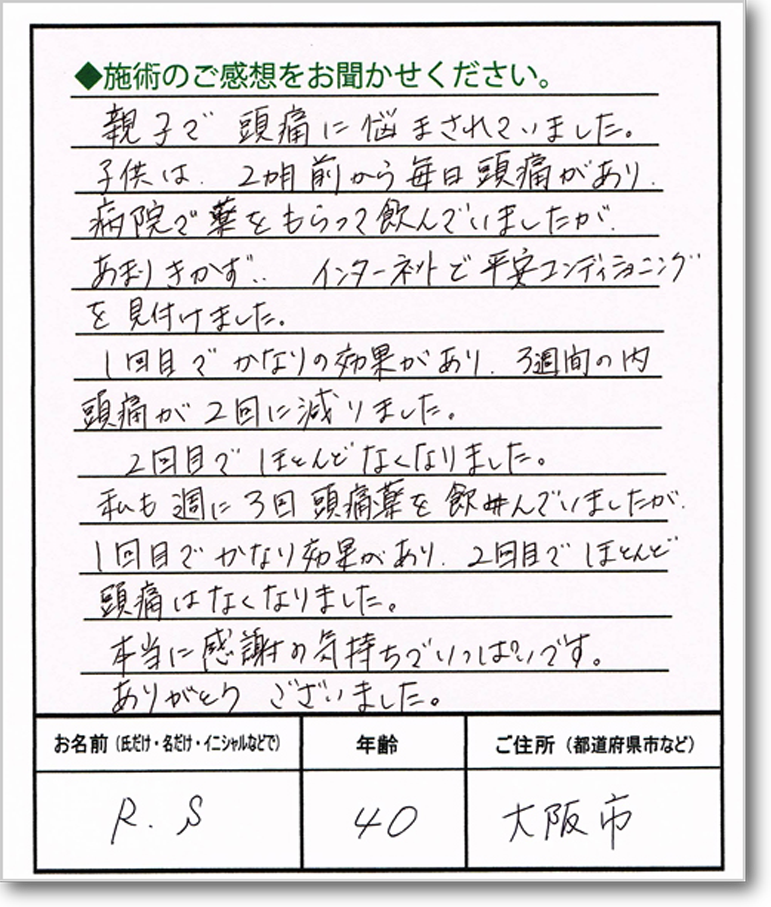 ◆施術のご感想をお聞かせください。
親子で頭痛に悩まされていました。
子供は、2か月前から毎日頭痛があり、
病院で薬をもらって飲んでいましたが、
あまりきかず、、インターネットで平安コンディショニング
を見付けました。
1回目でかなりの効果があり、3週間の内
頭痛が2回に減りました。
2回目でほとんどなくなりました。
私も週に3回頭痛薬を飲んでいましたが、
1回目でかなり効果があり、2回目でほとんど
頭痛はなくなりました。
本当に感謝の気持ちでいっぱいです。
ありがとうございました。
お名前（氏だけ・名だけ・イニシャルなどで） 年齢 ご住所（都道府県市など）
R.S 40 大阪市